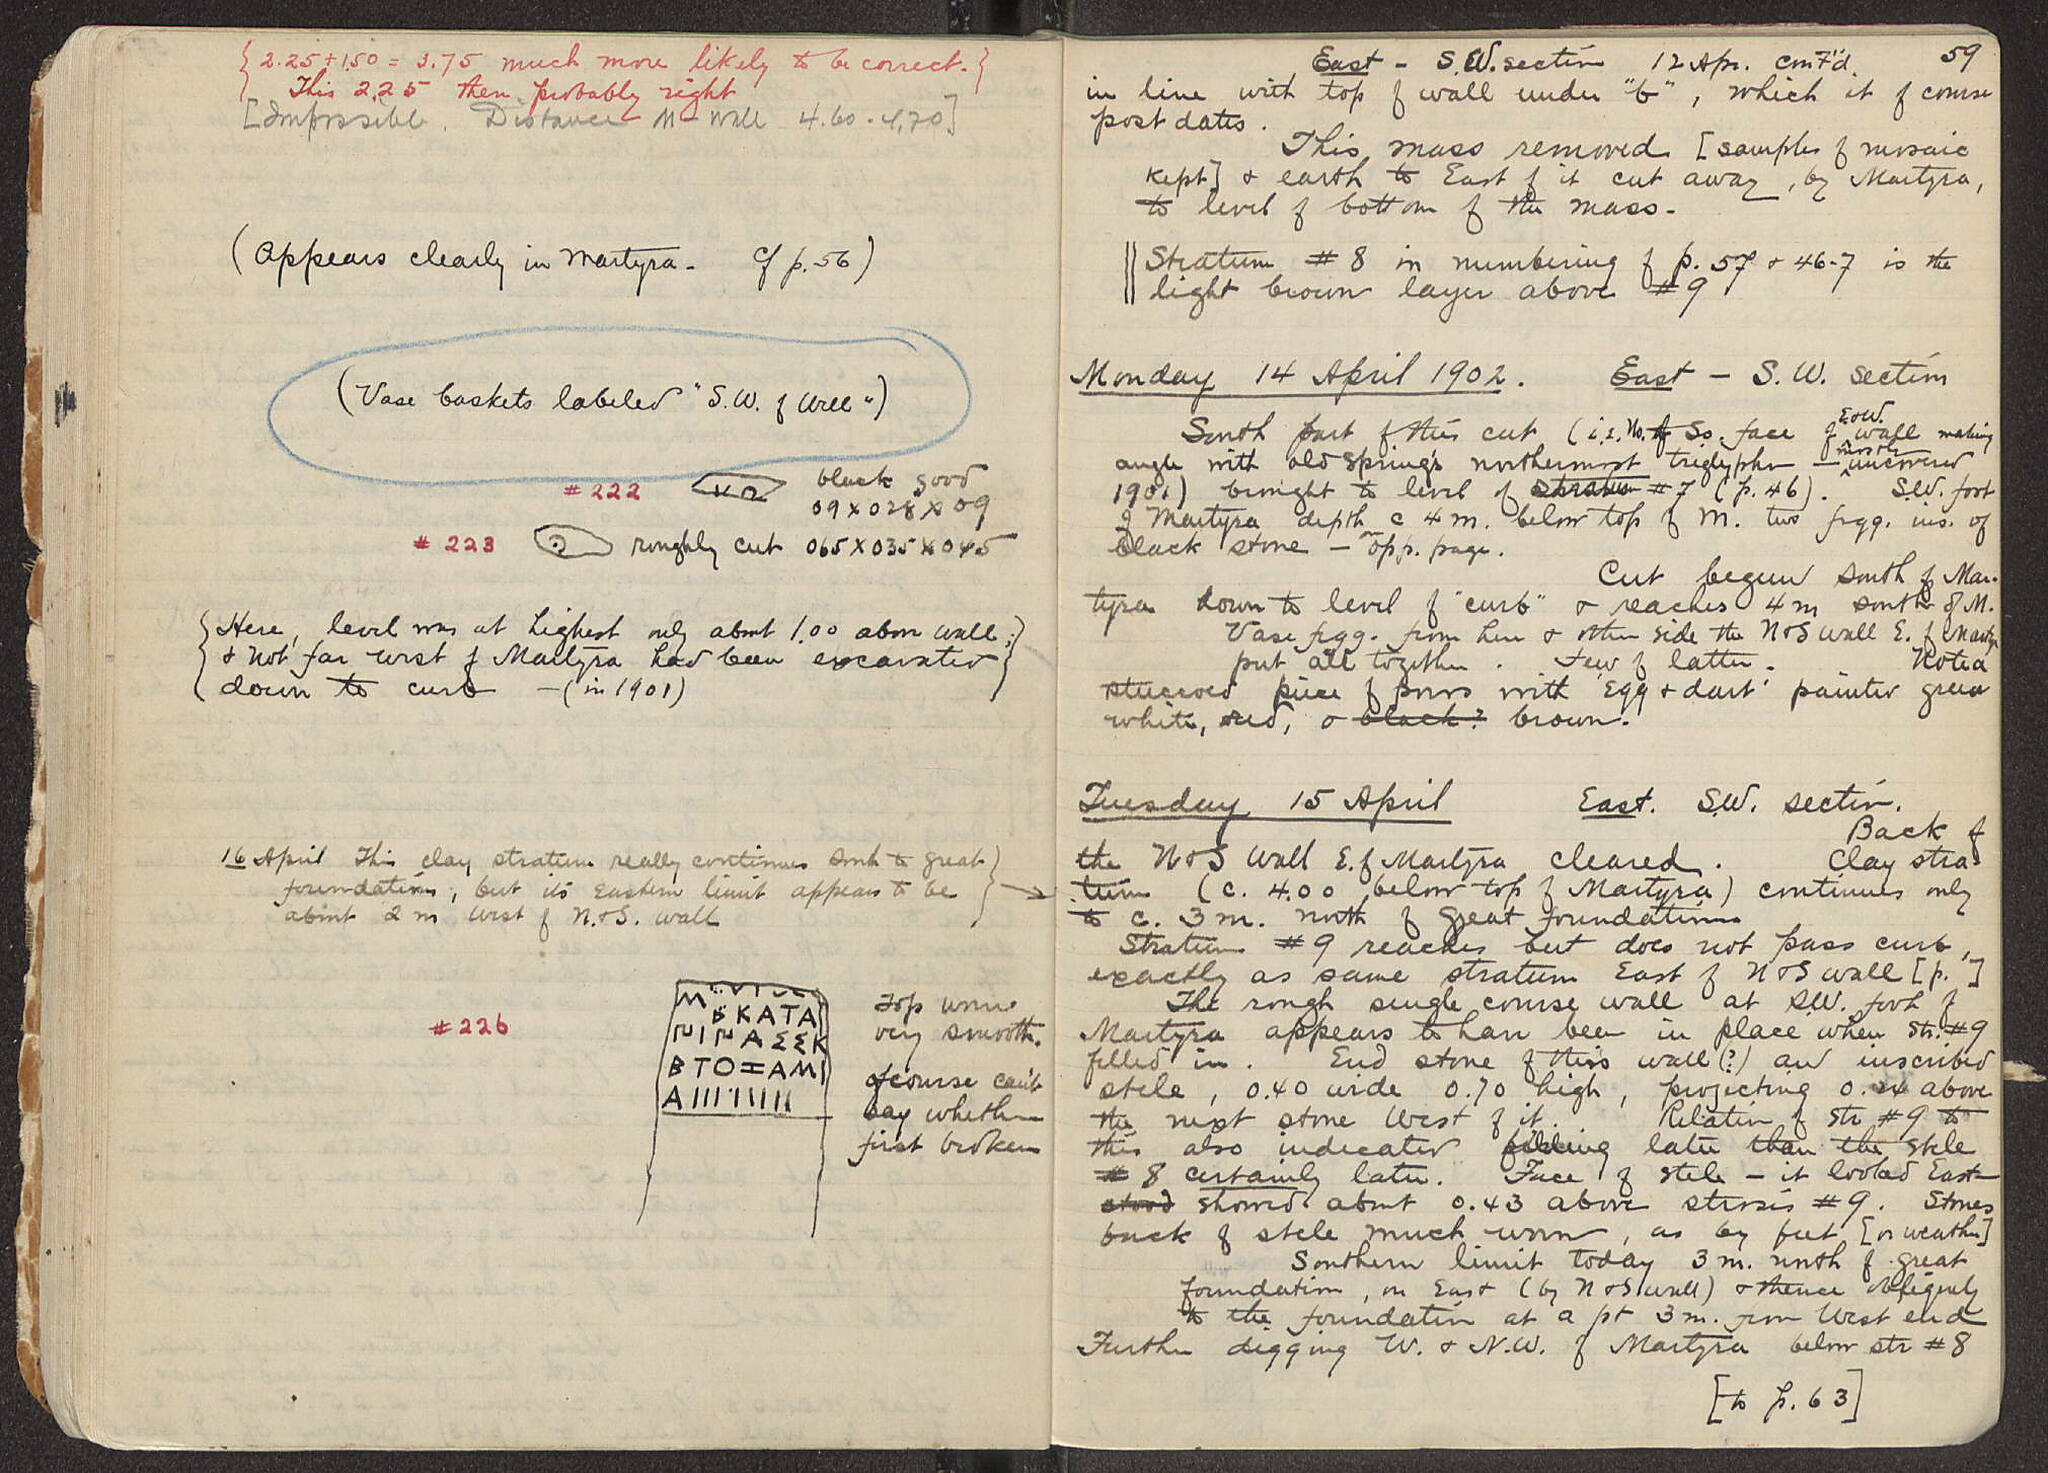 { 2.25 + 1.50 = 3.75 much more likely to be correct. }
This 2.25 then probably right
[Impossible. Distance M - wall 4.60 - 4.70]
(Appears clearly in Martyra - Cf p. 56)
(Vase baskets labeled "S.W. of Well")
#222 black good
09 x 028 x 09
#223 roughly cut 065 x 035 x 045
{ Here, level was at highest only about 1.00 above wall; }
& not far west of Martyra had been excavated
down to curb - (in 1901)
16 April This clay stratum really continues south to great
foundations, but its Eastern limit appears to be
about 2 m West of N & S. wall
#226
ΚΑΤΑ
ΒΤΟ ΑΜΙ
Top worn
very smooth.
of course can't
say whether
first broken
East - S.W. section 12 Apr. cont'd. 59
in line with top of wall under "b", which it of course
post dates.
This mass removed [samples of mosaic
kept] & earth to East of it cut away, by Martyra,
to level of bottom of the mass.
Stratum #8 in numbering of p. 57 & 46-7 is the
light brown layer above #9
Monday 14 April 1902. East - S.W. section
South part of this cut (i.e. No. of So. face of E & W. wall making
angle with old Spring's northernmost triglyphon - uncovered
1901) brought to level of stratum #7 (p. 46). S.W. foot
of Martyra depth c 4 m. below top of M. two frgg. ins. of
black stone - on opp. page.
Cut begun south of Mar-
tyra down to level of "curb" & reaches 4 m south of M.
Vase frgg. from here & other side the N & S wall E. of Martyra
put all together. Few of latter. Noted
stuccoed piece of poros with 'Egg & dart' painted green
white, red, & black? brown.
Tuesday 15 April East. S.W. section.
Back of
the N & S wall E. of Martyra cleared. Clay stra-
tum (c. 4.00 below top of Martyra) continues only
to c. 3 m. north of great foundations
Stratum #9 reaches but does not pass curb,
exactly as same stratum East of N & S wall [p. ]
The rough single course wall at S.W. foot of
Martyra appears to have been in place when str. #9
filled in. End stone of this wall (?) an inscribed
stele, 0.40 wide 0.70 high, projecting 0.24 above
the next stone West of it. Relation of str #9 to
this also indicated filling later than the stele
#8 certainly later. Face of stele - it looked East-
stood showed about 0.43 above strosis #9. Stones
back of stele much worn, as by feet [or weather]
Southern limit today 3 m. north of great
foundation, on East (by N & S wall) & thence obliquely
to the foundation at a pt 3 m. from West end
Further digging W. & N.W. of Martyra below str #8
[to p. 63]